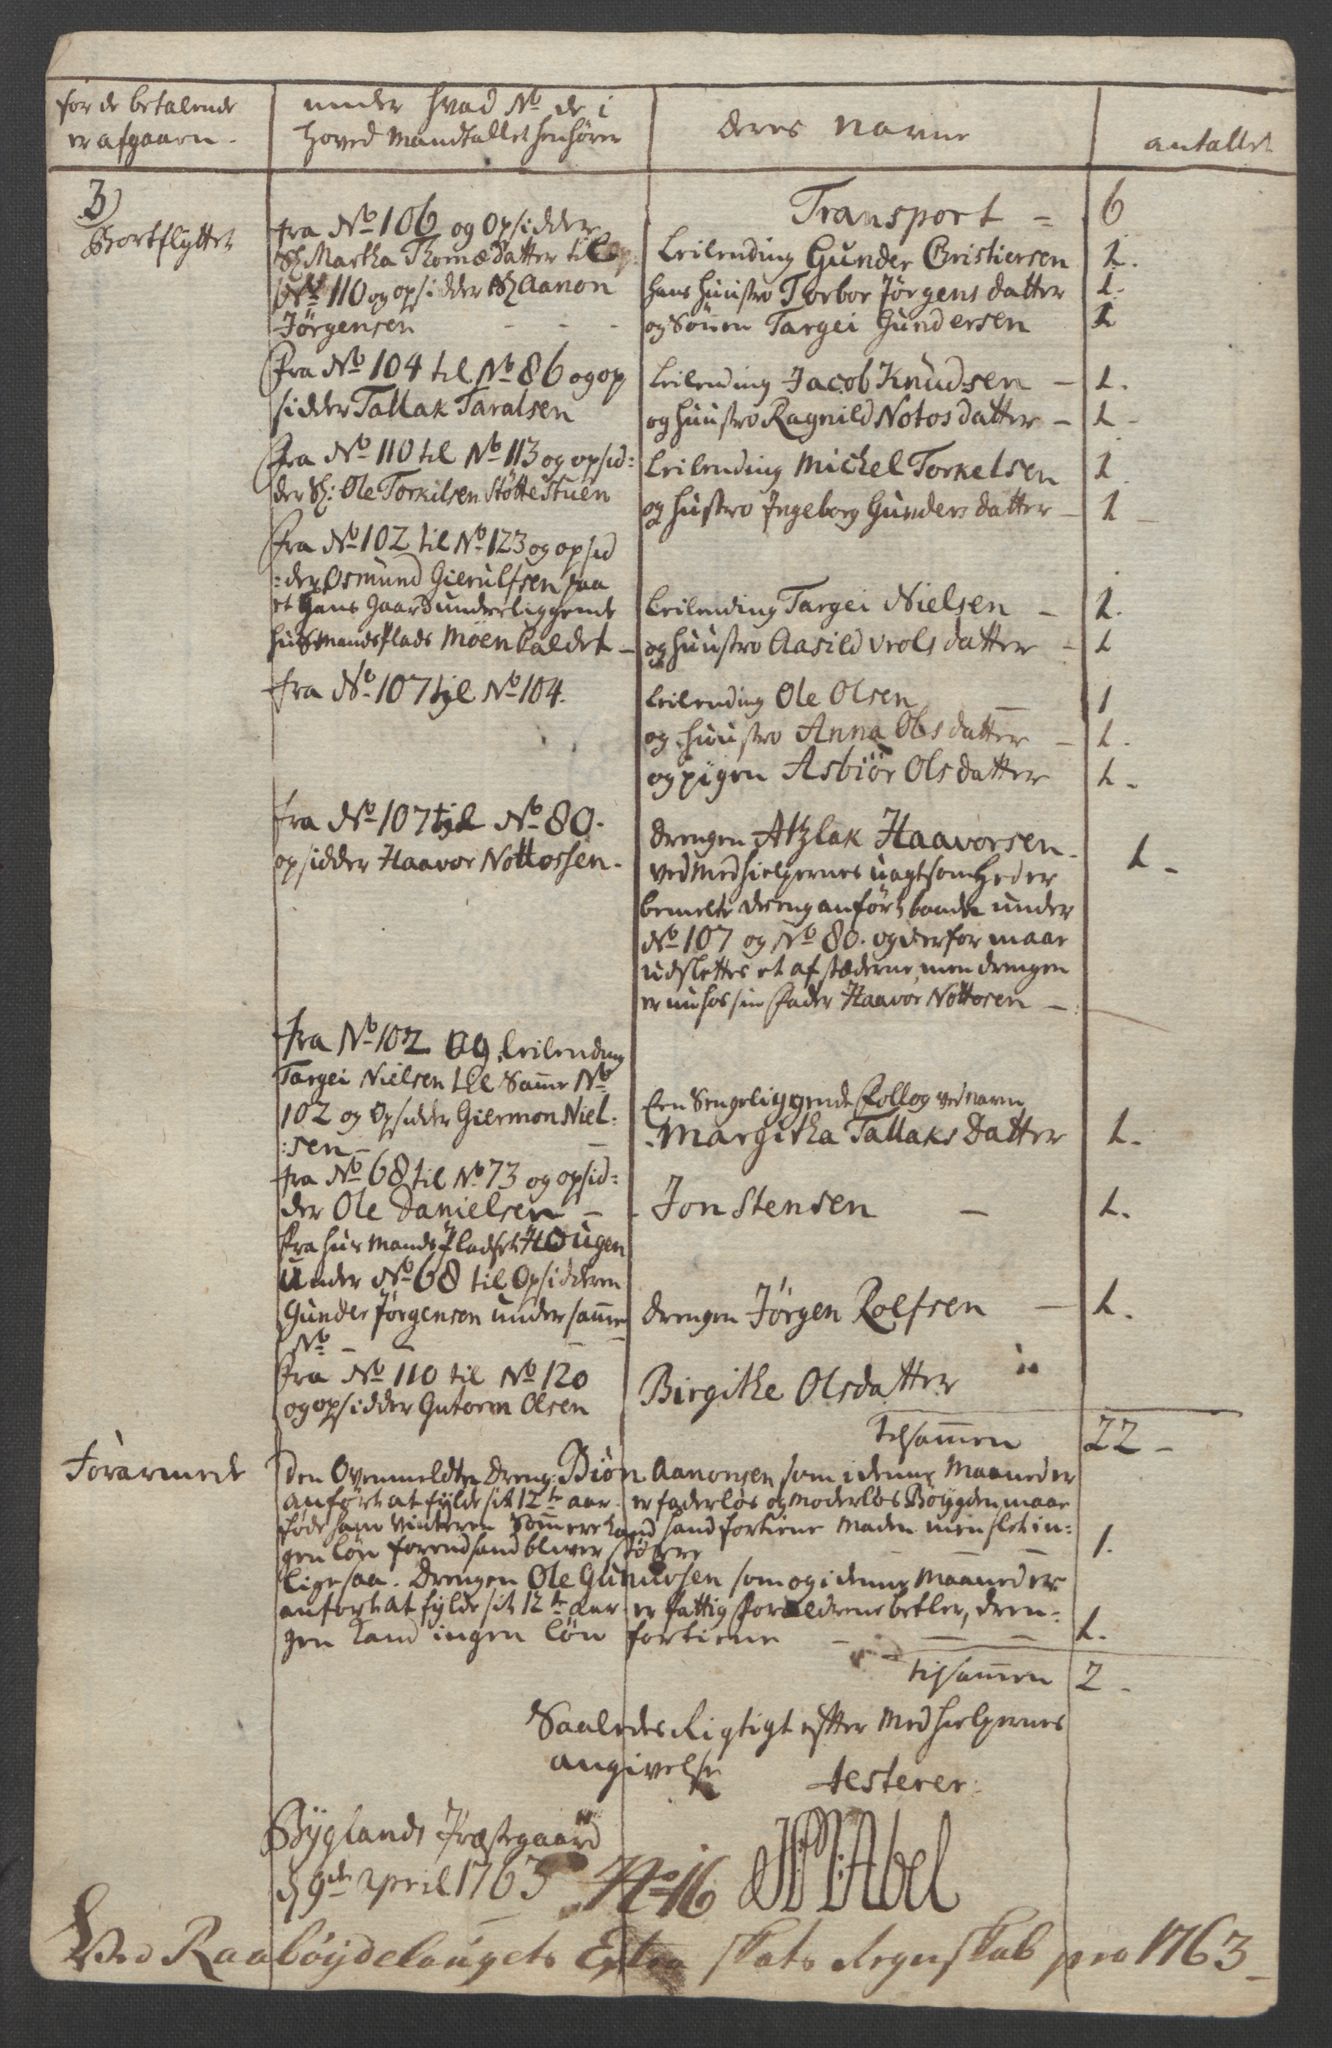 for de betalende
er afgaaen.
under hvad No de i
hoved Mandtallet henhører
deres navne
antallet
3)
Bortflyttet
Transport - 6
fra No 106 og Opsidder
Sl. Martha Thomædatter til
No 110 og opsidder Sl Aanon
Jørgensen - - -
Leilending Gunder Christiersen 1.
hans huustro Torbor Jørgensdatter 1.
og Sønen Targei Gundersen 1
Fra No 104 til No 86 og op
sidder Tallak Taralsen
Leilending Jacob Knudsen - 1.
og huustro Ragnild Notosdatter - 1 -
Fra No 110 til No 113 og opsid:
der Sl: Ole Torkilsen Støttestuen
Leilending Michel Torkelsen 1
og hustro Ingeborg Gunders datter - 1 -
Fra No 102 til No 123 og opsid
:der Osmund Gierulfsen paa
et hans Gaard underliggende
husmandsplads Møen kaldet -
Leilending Targei Nielsen - 1.
og huustro Aasild Vrols datter - 1
fra No 107 til No 104.
Leilending Ole Olsen - 1
og huustro Anna Olsdatter - 1.
og pigen Asbiør Olsdatter 1 -
fra No 107 til No 80.
opsidder Haavor Nottossen -
drengen Atzlak Haavorsen - 1 -
ved Medhielpernes uagtsomheder
bemelte dreng anført baade under
No 107 og No 80. og derfor maae
udslettes et af stæderne, men drengen
er nu hos sin Fader Haavor Nottosen -
fra No 102 og Leilending
Targei Nielsen til Samme No
102 og Opsidder Giermon Niel-
:sen - -
Een Sengeliggende Follog ved navn
Margitha Tallaks Datter 1 -
fra No 68 til No 73 og opsid:
der Ole Danielsen -
Jon Stensen - 1.
Fra husmands Pladset Hougen
Under No 68 til Opsidderen
Gunder Jørgensen under samme
No - - -
drengen Jørgen Roefsen - 1.
Fra No 110 til No 120
og opsidder Gutorm Olsen
Birgithe Olsdatter
tilsammen 22 -
Forarmede
Den Ovenmeldte Dreng Biøn Aanonsen som i denne Maaned er
anført at fylde sit 12te aar. er faderløs og Moderløs Bøygden maae
føde ham Vinteren Sommeren kand hand fortiene Maden men slet in-
gen løn forend hand bliver større - - 1.
Ligesaa. Drengen Ole Gunuvsen som og i denne Maaned er
anført at fylde sit 12te aar. er fattig forældrene betler, dren-
gen kand ingen løn fortiene - - - 1.
tilsammen 2 -
Saaledes Rigtigt efter Medhielpernes
angivelse testerer:
Byglands Præstegaard
d 9de april 1763 No 16 Abel
Ved Raabøydelaugets Extra skats Regnskab pro 1763 -